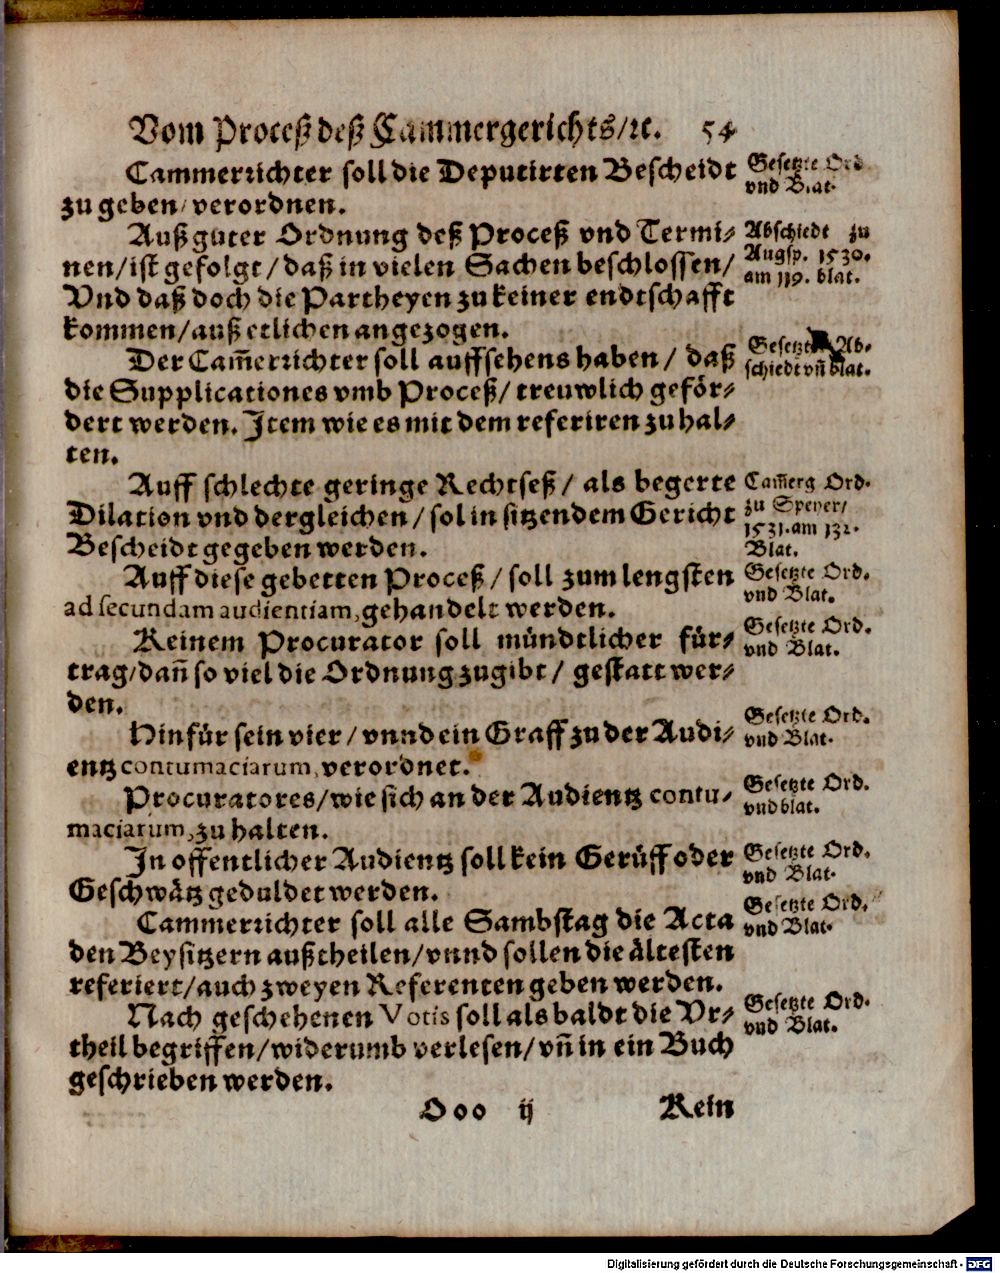 Vom Proceß deß Cammergerichts/ꝛc. 54
Cammerrichter soll die Deputirten Bescheidt
zu geben/ verordnen.
Auß guter Ordnung deß Proceß vnd Termi⸗
nen/ist gefolgt/daß in vielen Sachen beschlossen/
Vnd daß doch die Partheyen zu keiner endtschafft
kommen/auß etlichen angezogen.
Der Cam̃errichter soll auffsehens haben/ daß
die Supplicationes vmb Proceß/ treuwlich geför⸗
dert werden. Item wie es mit dem referiren zu hal⸗
ten.
Auff schlechte geringe Rechtseß/ als begerte
Dilation vnd dergleichen/ sol in sitzendem Gericht
Bescheidt gegeben werden.
Auff diese gebetten Proceß/ soll zum lengsten
ad secundam audientiam, gehandelt werden.
Keinem Procurator soll mündtlicher für⸗
trag/dañ so viel die Ordnung zugibt/ gestatt wer⸗
den.
Hinfür sein vier/ vnnd ein Graff zu der Audi⸗
entz contumaciarum, verordnet.
Procuratores/wie sich an der Audientz contu-
maciarum, zu halten.
In offentlicher Audientz soll kein Gerüff oder
Geschwätz geduldet werden.
Cammerrichter soll alle Sambstag die Acta
den Beysitzern außtheilen/vnnd sollen die ältesten
referiert/auch zweyen Referenten geben werden.
Nach geschehenen Votis soll als baldt die Vr⸗
theil begriffen/widerumb verlesen/vñ in ein Buch
geschrieben werden.
Ooo ij Kein
Gesetzte Ord.
vnd Blat.
Abschiedt zu
Augsp. 1530.
am 119. blat.
Gesetzte Ab⸗
schiedt vñ blat.
Cam̃erg Ord.
zu Speyer/
1531. am 132.
Blat.
Gesetzte Ord.
vnd Blat.
Gesetzte Ord.
vnd Blat.
Gesetzte Ord.
vnd Blat.
Gesetzte Ord.
vnd blat.
Gesetzte Ord.
vnd Blat.
Gesetzte Ord.
vnd Blat.
Gesetzte Ord.
vnd Blat.
Digitalisierung gefördert durch die Deutsche Forschungsgemeinschaft - DFG